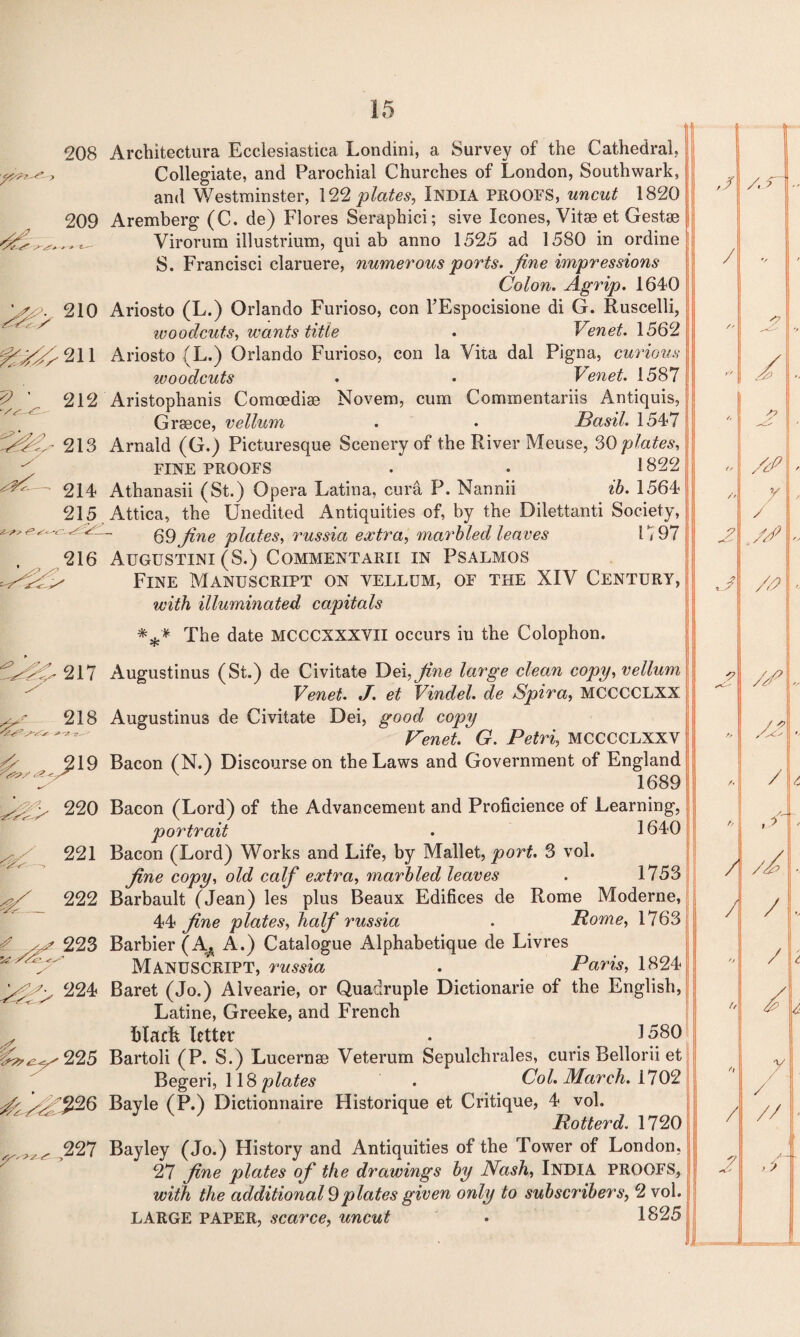 15
208 Architectura Ecclesiastica Londini, a Survey of the Cathedral,
Collegiate, and Parochial Churches of London, Southwark,
and Westminster, 122 plates, INDIA PROOFS, uncut 1820
209 Aremberg (C. de) Flores Seraphici; sive Icones, Vitæ et Gestæ
Virorum illustrium, qui ab anno 1525 ad 1580 in ordine
S. Francisci claruere, numerous ports. fine impressions
Colon. Agrip. 1640
210 Ariosto (L.) Orlando Furioso, con l'Espocisione di G. Ruscelli,
woodcuts, wants title . Venet. 1562
211 Ariosto (L.) Orlando Furioso, con la Vita dal Pigna, curious
woodcuts . . Venet. 1587
212 Aristophanis Comœdiæ Novem, cum Commentariis Antiquis,
Græce, vellum . . Basil. 1547
213 Arnald (G.) Picturesque Scenery of the River Meuse, 30 plates,
FINE PROOFS . . 1822
214 Athanasii (St.) Opera Latina, curâ P. Nannii ib. 1564
215 Attica, the Unedited Antiquities of, by the Dilettanti Society,
69 fine plates, russia extra, marbled leaves 1797
216 AUGUSTINI (S.) COMMENTARII IN PSALMOS
FINE MANUSCRIPT ON VELLUM, OF THE XIV CENTURY,
with illuminated capitals
*** The date MCCCXXXVII occurs in the Colophon.
217 Augustinus (St.) de Civitate Dei, fine large clean copy, vellum
Venet. J. et Vindel. de Spira, MCCCCLXX
218 Augustinus de Civitate Dei, good copy
Venet. G. Petri, MCCCCLXXV
219 Bacon (N.) Discourse on the Laws and Government of England
1689
220 Bacon (Lord) of the Advancement and Proficience of Learning,
portrait . 1640
221 Bacon (Lord) Works and Life, by Mallet, port. 3 vol.
fine copy, old calf extra, marbled leaves . 1753
222 Barbault (Jean) les plus Beaux Edifices de Rome Moderne,
44 fine plates, half russia . Rome, 1763
223 Barbier (A. A.) Catalogue Alphabetique de Livres
MANUSCRIPT, russia . Paris, 1824
224 Baret (Jo.) Alvearie, or Quadruple Dictionarie of the English,
Latine, Greeke, and French
black letter . 1580
225 Bartoli (P. S.) Lucernæ Veterum Sepulchrales, curis Bellorii et
Begeri, 118 plates . Col. March. 1702
226 Bayle (P.) Dictionnaire Historique et Critique, 4 vol.
Rotterd. 1720
227 Bayley (Jo.) History and Antiquities of the Tower of London,
27 fine plates of the drawings by Nash, INDIA PROOFS,
with the additional 9 plates given only to subscribers, 2 vol.
LARGE PAPER, scarce, uncut . 1825